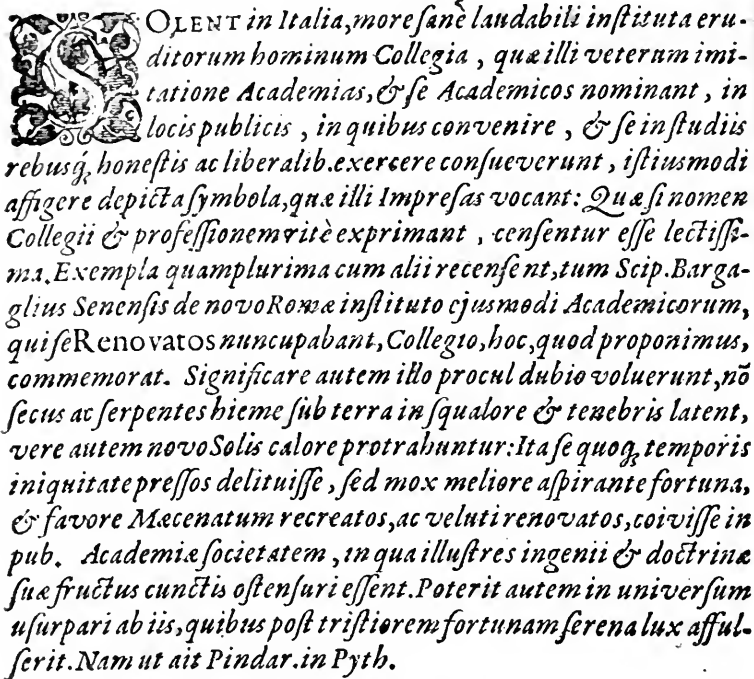 SOLENT in Italia, more sanè laudabili instituta eru-
ditorum hominum Collegia, quæ illi veterum imi-
tatione Academias, & se Academicos nominant, in
locis publicis, in quibus convenire, & se in studiis
rebusq́; honestis ac liberalib. exercere consueverunt, istiusmodi
affigere depicta symbola, quæ illi Impresas vocant: Quæ si nomen
Collegii & professionem ritè exprimant, censentur esse lectissi-
ma. Exempla quamplurima cum alii recensent, tum Scip. Barga-
glius Senensis de novo Romæ instituto ejusmodi Academicorum,
qui se Renovatos nuncupabant, Collegio, hoc, quod proponimus,
commemorat. Significare autem illo procul dubio voluerunt, nō
secus ac serpentes hieme sub terra in squalore & tenebris latent,
vere autem novo Solis calore protrahuntur: Ita se quoq; temporis
iniquitate pressos delituisse, sed mox meliore aspirante fortuna,
& favore Mæcenatum recreatos, ac veluti renovatos, coivisse in
pub. Academiæ societatem, in qua illustres ingenii & doctrinæ
suæ fructus cunctis ostensuri essent. Poterit autem in universum
usurpari ab iis, quibus post tristiorem fortunam serena lux afful-
serit. Nam ut ait Pindar. in Pyth.